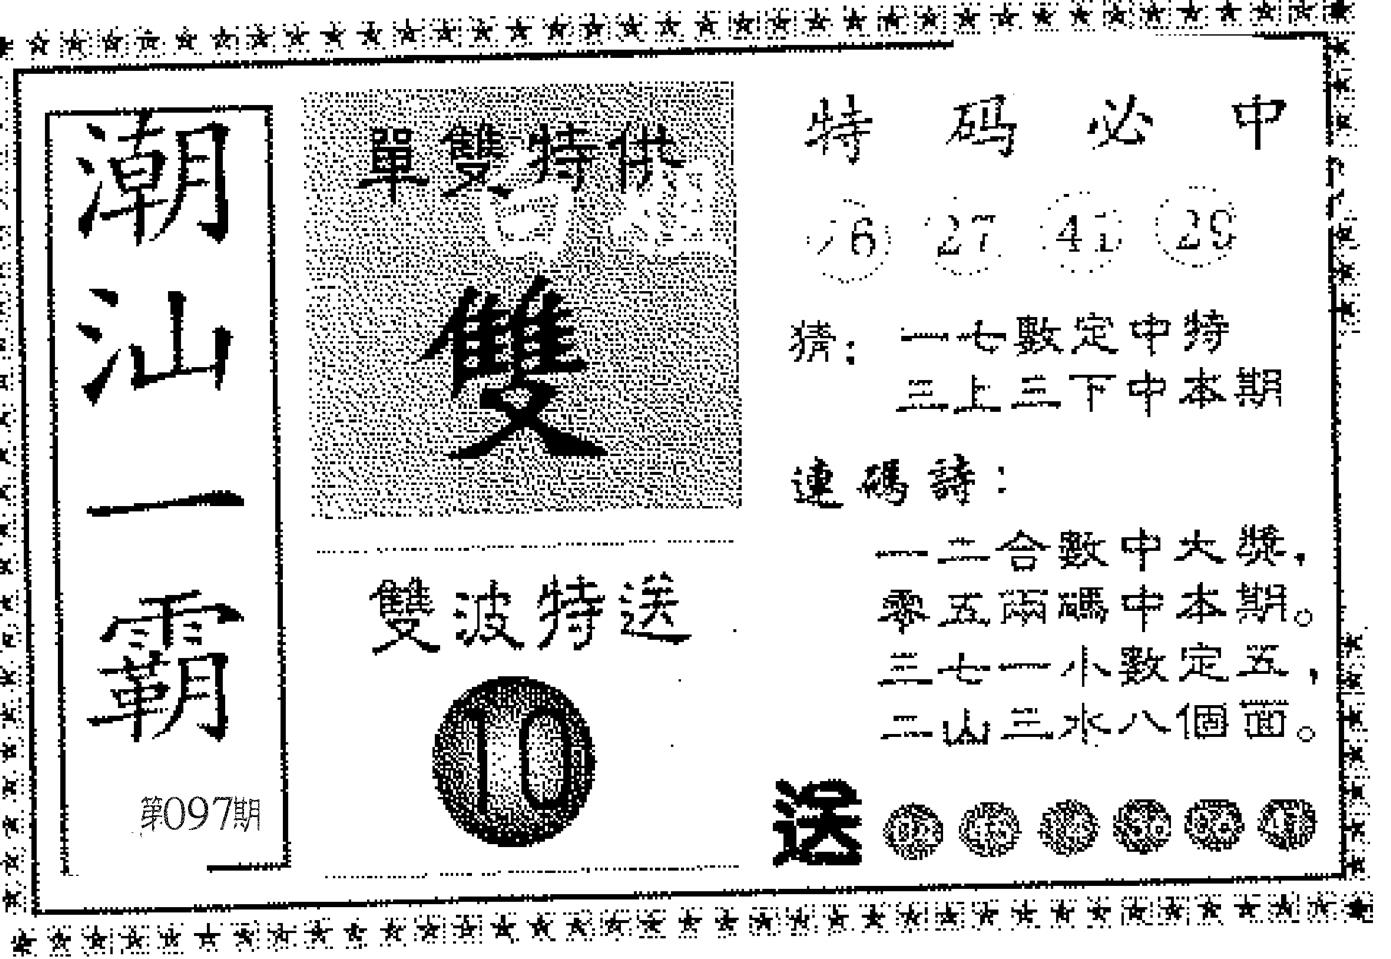 潮汕一霸
第097期
單雙特供
雙
雙波特送
10
特码必中
27 29
猜：一七數定中特
三上三下中本期
連碼詩：
一二合數中大獎，
零五兩碼中本期。
三七一小數定五，
二山三水八個面。
送